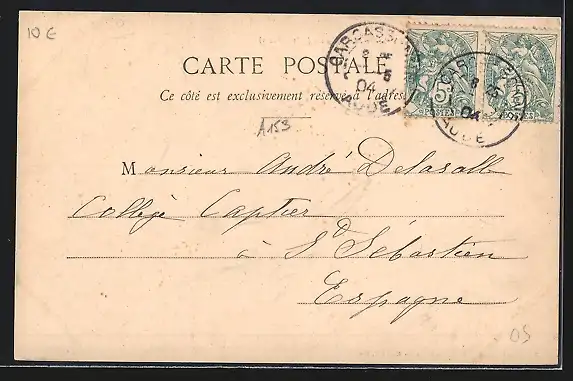 10 €
CARTE POSTALE
Ce côté est exclusivement réservé à l'adresse
A153
CARCASSONNE
8 5
04
AUDE
5
POSTES
CARCASSONNE
8 5
04
AUDE
POSTES
Monsieur André Delasalle
Collège Captier
à St Sébastien
Espagne
OS